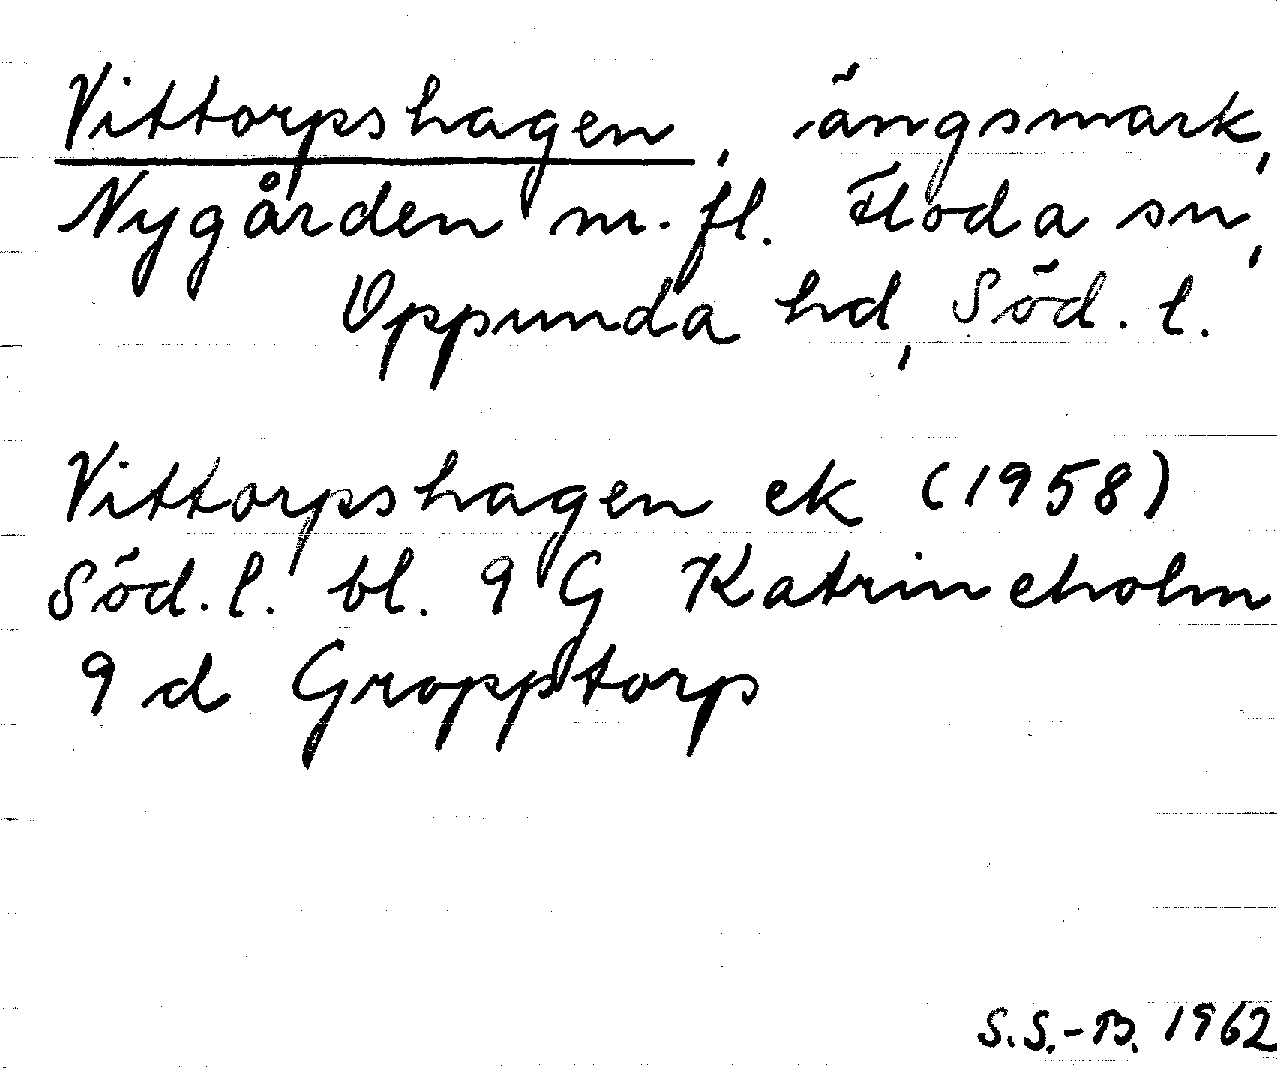 Vittorpshagen, ängsmark,
Nygården m. fl. Floda sn,
Oppunda hd, Söd. l.
Vittorpshagen ek (1958)
Söd. l. bl. 9 G Katrineholm
9 d Gropptorp
S.S.-B. 1962